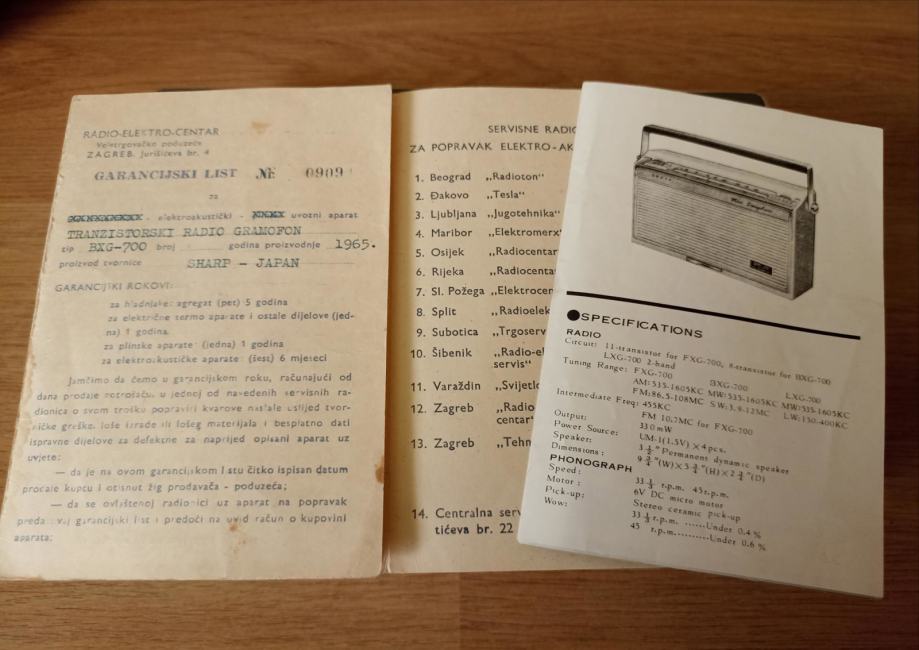 RADIO-ELEKTRO-CENTAR
Veletrgovačko poduzeće
ZAGREB, Jurišićeva br. 4
GARANCIJSKI LIST № 0909
za
elektroakustički - uvozni aparat
TRANZISTORSKI RADIO GRAMOFON
tip BXG-700 broj godina proizvodnje 1965.
proizvod tvornice SHARP - JAPAN
GARANCIJSKI ROKOVI:
za hladnjake: agregat (pet) 5 godina
za električne termo aparate i ostale dijelove (jed-
na) 1 godina
za plinske aparate (jedna) 1 godina
za elektroakustičke aparate (šest) 6 mjeseci
Jamčimo da ćemo u garancijskom roku, računajući od
dana prodaje potrošaču, u jednoj od navedenih servisnih ra-
dionica o svom trošku popraviti kvarove nastale uslijed tvor-
ničke greške, loše izrade ili lošeg materijala i besplatno dati
ispravne dijelove za defektne za naprijed opisani aparat uz
uvjete:
— da je na ovom garancijskom listu čitko ispisan datum
prodaje kupcu i otisnut žig prodavača - poduzeća;
— da se ovlaštenoj radionici uz aparat na popravak
preda ovaj garancijski list i predoči na uvid račun o kupovini
aparata;
SERVISNE RADIO
ZA POPRAVAK ELEKTRO-AK
1. Beograd „Radioton"
2. Đakovo „Tesla"
3. Ljubljana „Jugotehnika"
4. Maribor „Elektromerx"
5. Osijek „Radiocentar
6. Rijeka „Radiocentar
7. Sl. Požega „Elektrocen
8. Split „Radioelek
9. Subotica „Trgoserv
10. Šibenik „Radio-el
servis"
11. Varaždin „Svijetlo
12. Zagreb „Radio
centar"
13. Zagreb „Tehn
14. Centralna serv
tićeva br. 22
●SPECIFICATIONS
RADIO
Circuit: 11-transistor for FXG-700, 8-transistor for BXG-700
LXG-700 2-band
Tuning Range: FXG-700 BXG-700 LXG-700
AM:535-1605KC MW:535-1605KC MW:535-1605KC
FM:86.5-108MC SW:3.9-12MC LW:150-400KC
Intermediate Freq: 455KC
FM 10.7MC for FXG-700
Output: 330mW
Power Source: UM-1(1.5V) × 4pcs.
Speaker: 3 ½" Permanent dynamic speaker
Dimensions: 9 ¾"(W)×5 ¾"(H)×2 ¾"(D)
PHONOGRAPH
Speed: 33 ⅓ r.p.m. 45r.p.m.
Motor: 6V DC micro motor
Pick-up: Stereo ceramic pick-up
Wow: 33 ⅓ r.p.m. ......Under 0.4%
45 r.p.m..........Under 0.6%